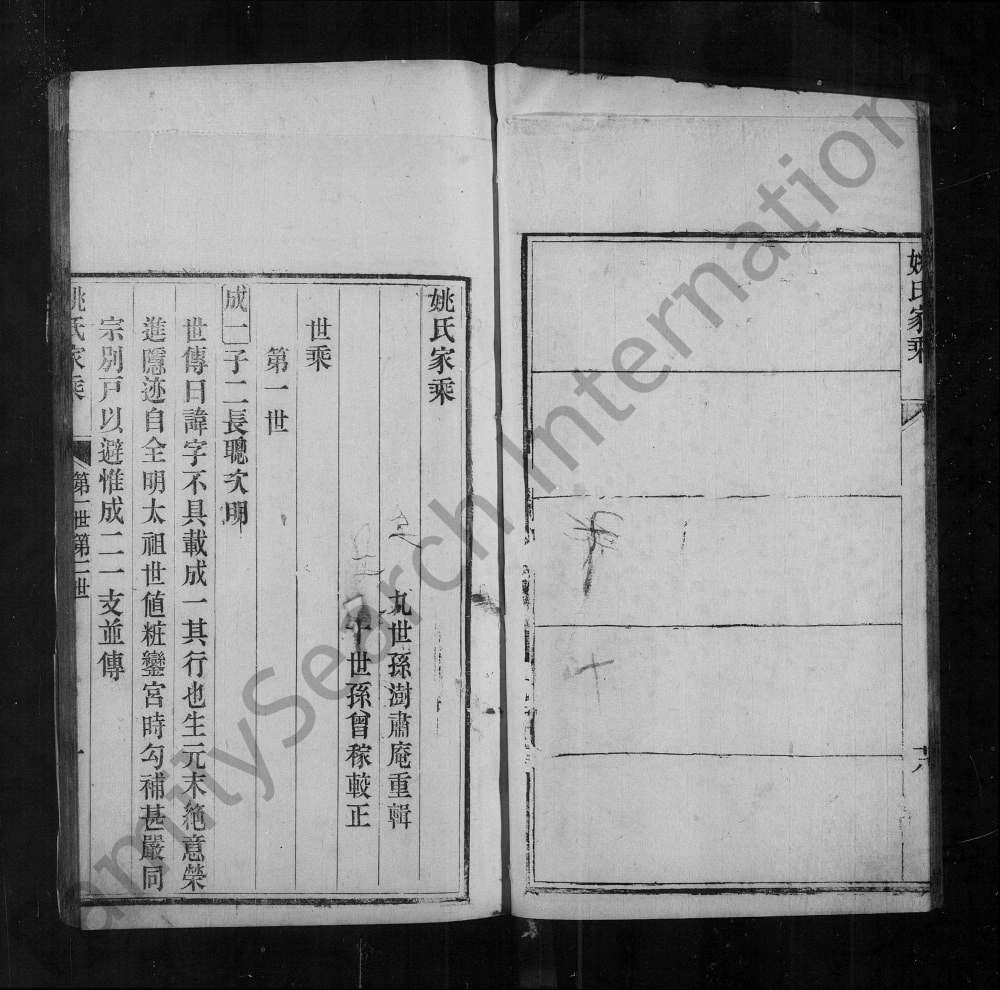 姚氏家乘
六
姚氏家乘
九世孫澍肅庵重輯
十世孫曾稼較正
世乘
第一世
成一子二長聰次明
世傳曰諱字不具載成一其行也生元末絶意榮
進隱迹自全明太祖世値粧鑾宮時勾補甚嚴同
宗別戸以避惟成二一支並傳
姚氏家乘
第一世第二世
一
FamilySearch International